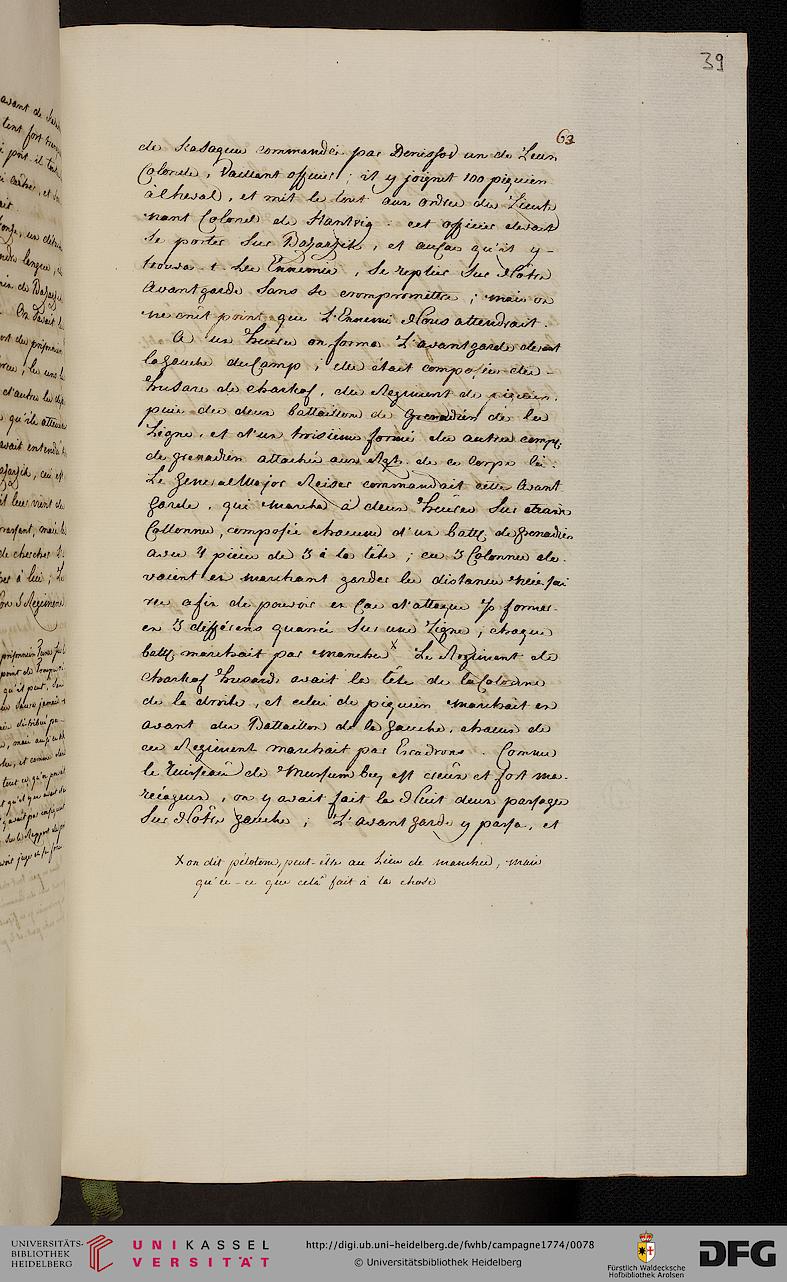 39
63
de Kosaques commandés par Denissof un de Leurs
Colonels, Vaillant officier; il y joignit 100 piquiers
à Cheval, et mit le tout aux ordres du Lieute
nant Colonel de Hantvig: cet officier devait
se porter sur Basarzik, et au Cas qu'il y-
trouva-t les Ennemis, se replier sur Notre
Avantgarde sans se compromettre; mais on
ne crût point que L'Ennemi Nous attendrait.
A un heure on forma L'avantgarde devant
la gauche du Camp; elle était composée des-
husars de Charkof, du Regiment de piquiers,
puis des deux battaillons de Grenadiers de la
Ligne, et d'un troisieme formé des autres comp:
de grenadiers attachés aux Rgts. de ce Corps là:
Le General Major Reiser commandait cette Avant
garde, qui marcha à deux heures sur trois
Collonnes, composées chacune d'un batt: de Grenadiers
avec 4 pièces de 3 à la tête; ces 3 Colonnes de-
vaient en marchant garder les distances nécessai
res afin de pouvoir en Cas d'attaque y former
en 3 différens quarrés sur une Ligne; chaque
batt: marchait par manches x Le Regiment de
Charkof husards avait la tête de la Colonne
de la droite, et celui de piquiers marchait en
avant du Battaillon de la gauche, chacun de
ces Regiments marchait par Escadrons. Comme
le ruisseau de Mursum bey est creux et fort ma-
récageux, on y avait fait la Nuit deux passages
sur Notre gauche; L'avantgarde y passa, et
x on dit pelotons, peut-être au Lieu de manches, mais
qu'est-ce que celà fait à la chose
UNIVERSITÄTS-
BIBLIOTHEK
HEIDELBERG
UNIKASSEL
VERSITÄT
http://digi.ub.uni-heidelberg.de/fwhb/campagne1774/0078
© Universitätsbibliothek Heidelberg
Fürstlich Waldecksche
Hofbibliothek Arolsen
DFG